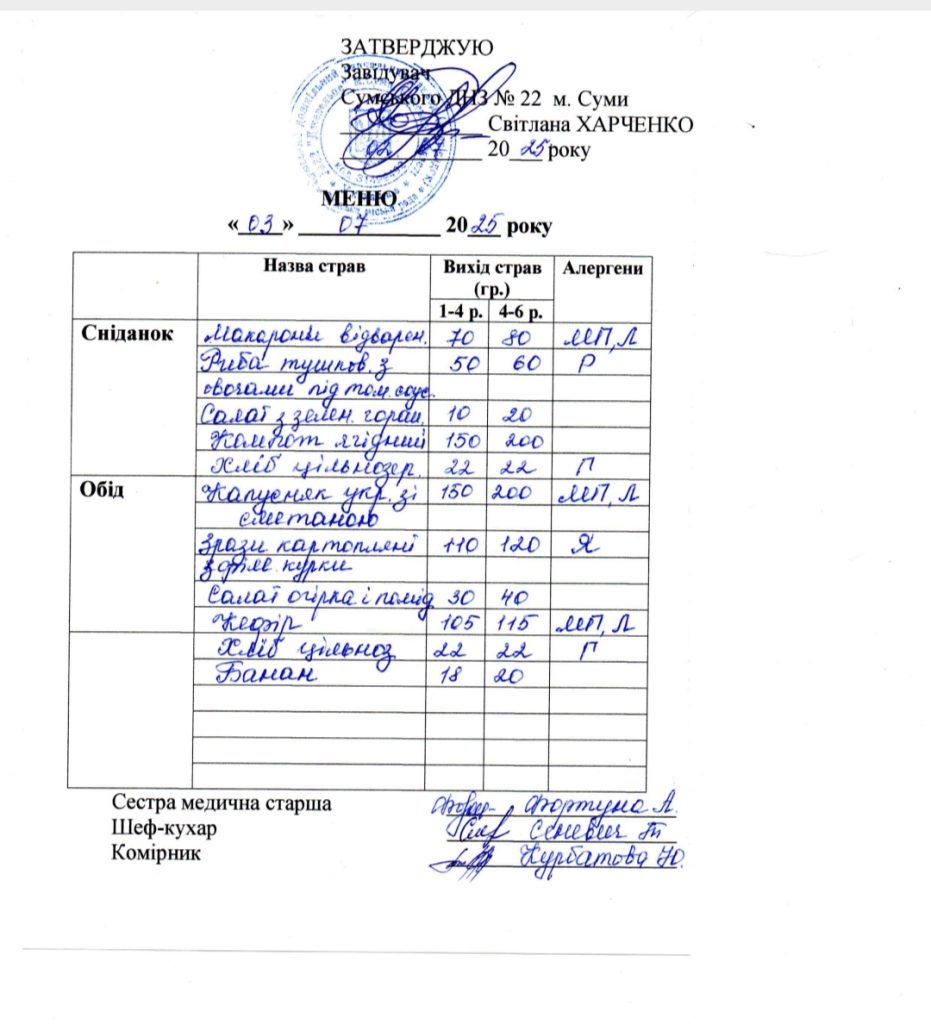 ЗАТВЕРДЖУЮ
Завідувач
Сумського ДНЗ № 22 м. Суми
Світлана ХАРЧЕНКО
02 07 2025 року
МЕНЮ
«03» 07 2025 року
Назва страв Вихід страв (гр.) Алергени
1-4 р. 4-6 р.
Сніданок Макарони відварен. 70 80 МП, Л
Риба тушков. з 50 60 Р
овочами під том. соус.
Салат з зелен. горош. 10 20
Компот ягідний 150 200
Хліб цільнозер. 22 22 П
Обід Капусняк укр. зі 150 200 МП, Л
сметаною
Зрази картопляні 110 120 Я
з філе курки
Салат огірка і помід 30 40
Кефір 105 115 МП, Л
Хліб цільноз 22 22 П
Банан 18 20
Сестра медична старша Фортуна А.
Шеф-кухар Сеневич Т
Комірник Курбатова Ю.